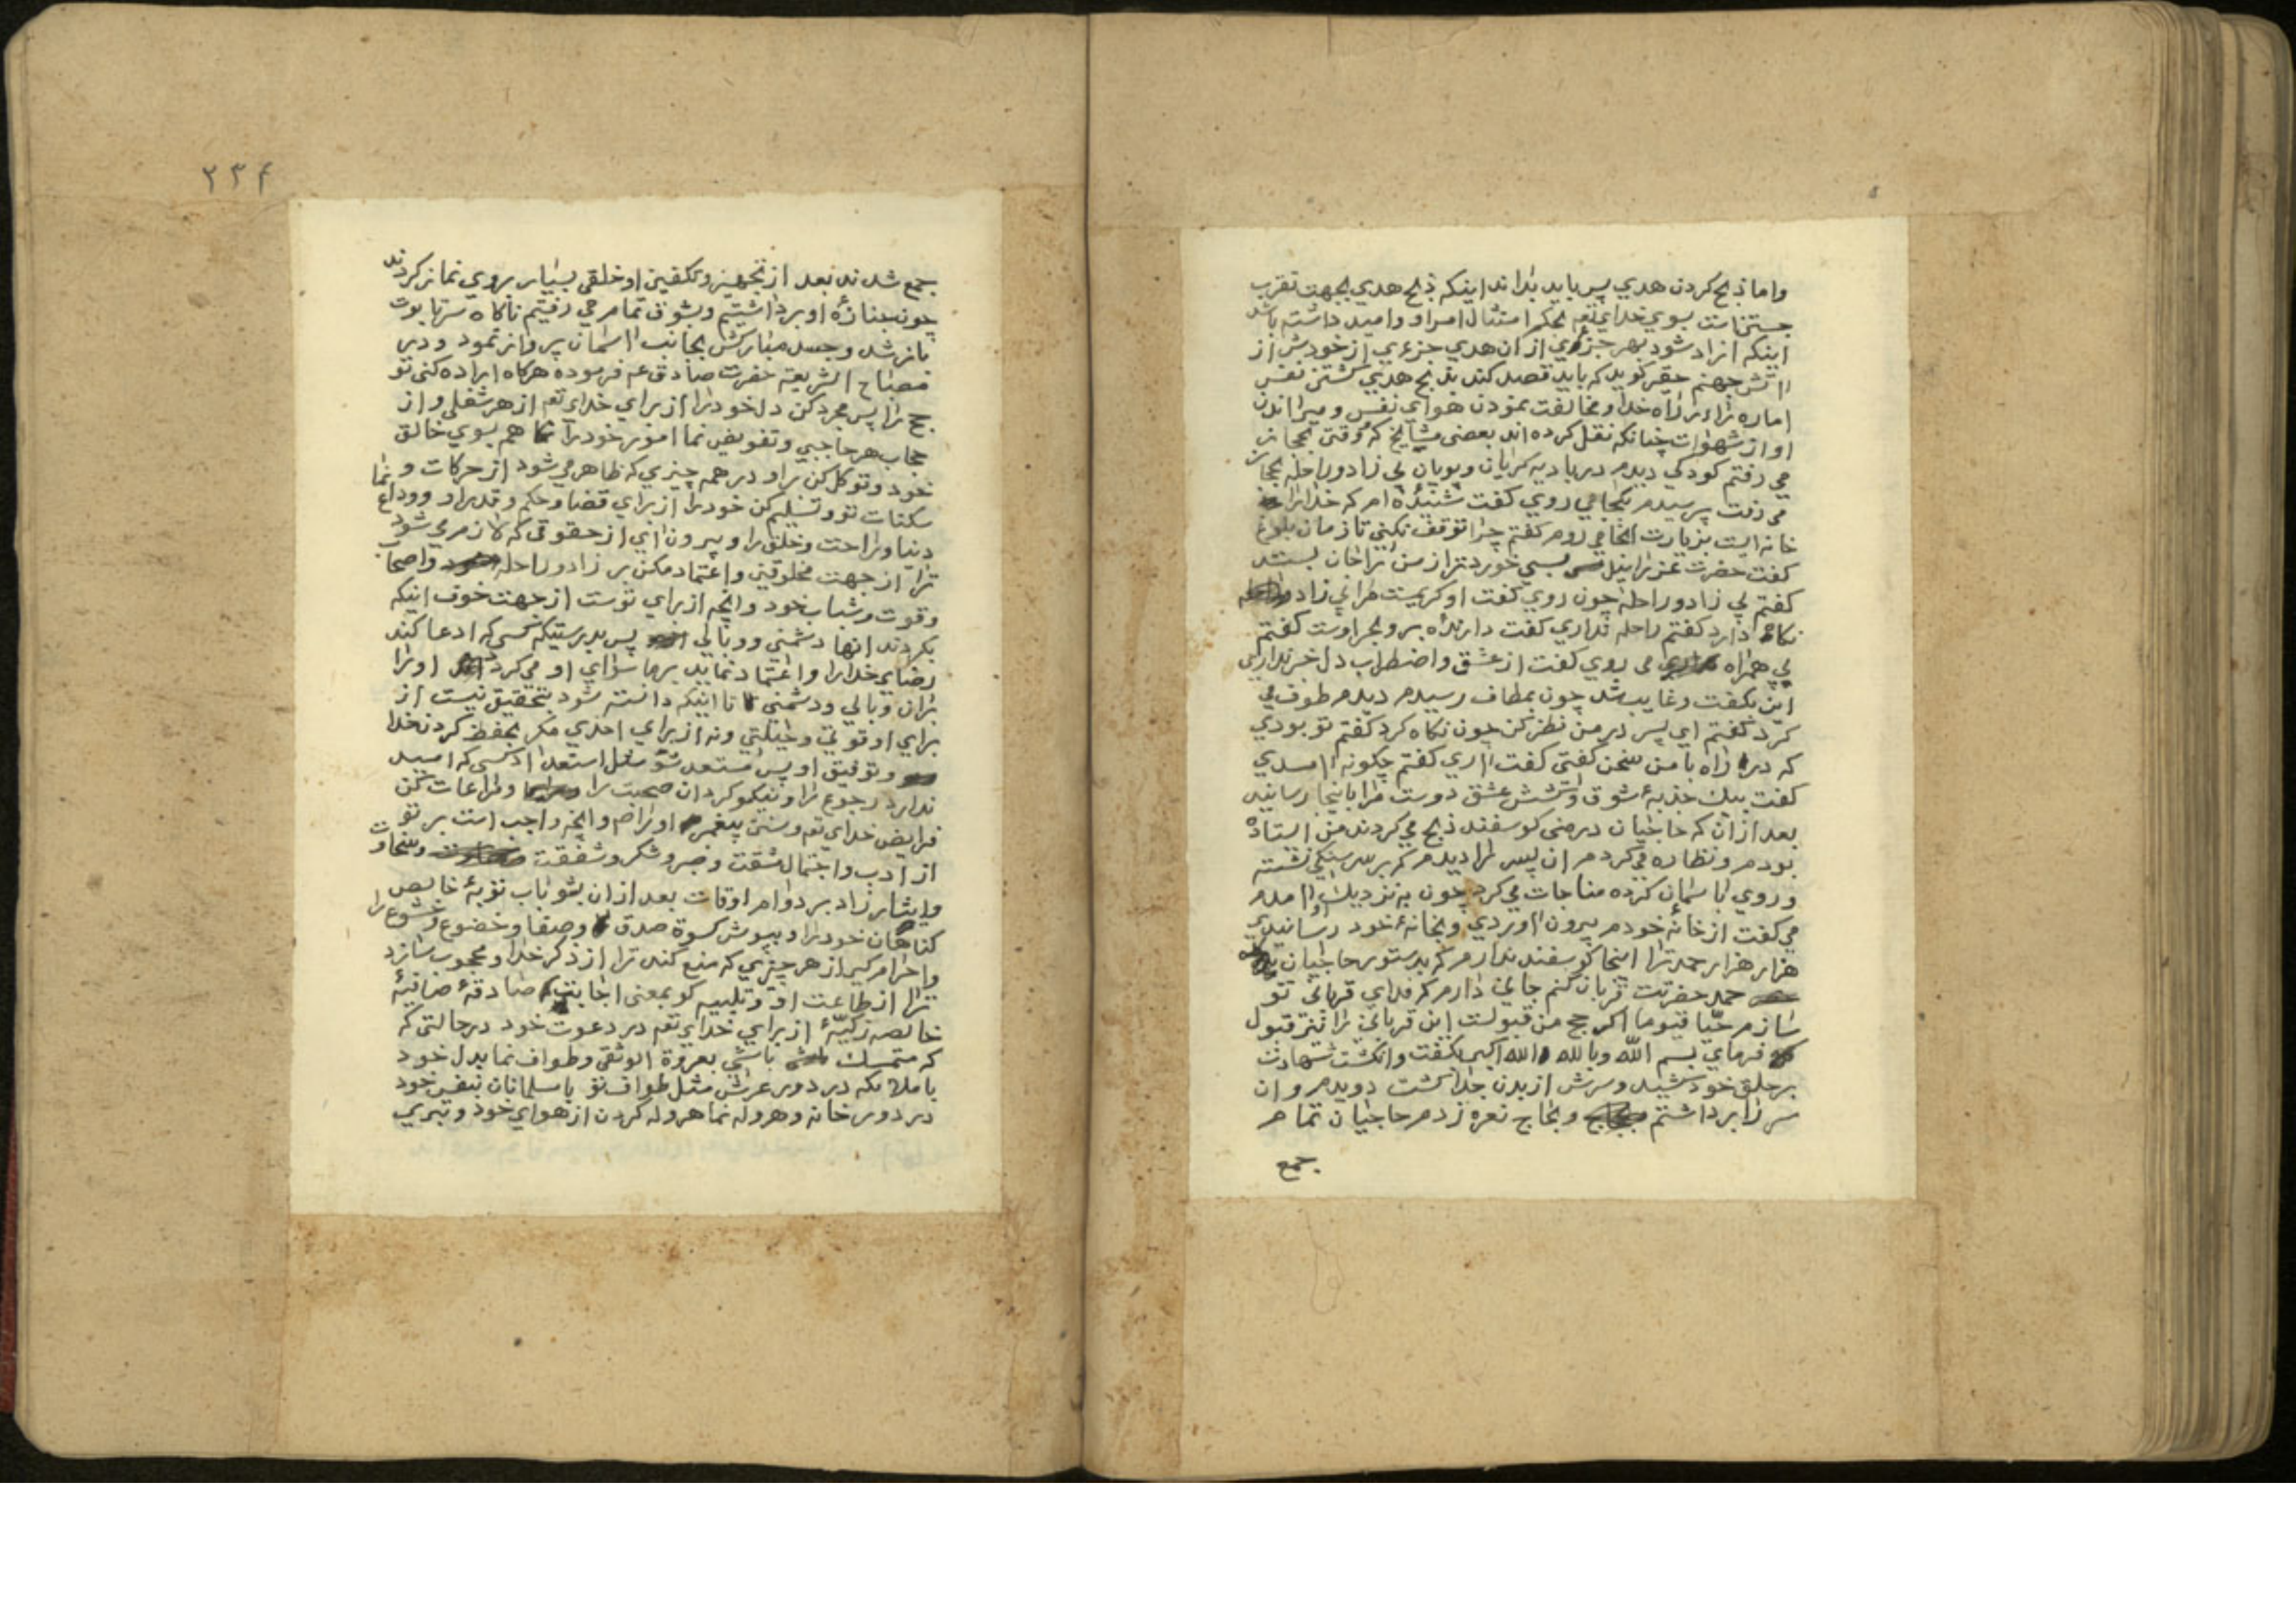 واما ذبح كردن هدي پس بايد بداند اينكه ذبح هدي بجهت تقرب
جستنانت بسوي خداي تعه بحكم امتثال امر او واميد داشته باشد
اينكه ازاد شود بهر جزءي از ان هدي جزءي از خودش از
اتش جهنم حقير كويد كه بايد قصد كند بذبح هدي كشتن نفس
اماره را در راه خدا و مخالفت نمودن هواي نفس و ميراندن
او از شهوات چنانكه نقل كرده اند بعضي مشايخ كه وقتي بحجاز
مي رفتم كودكي ديدم در باديه كريان وپويان بي زاد وراحله بحجاز
مي رفت پرسيدم بكجا مي روي كفت شنيده ام كه خدا را
خانه ايست بزيارت انجا مي روم كفتم چرا توقف نكني تا زمان بلوغ
كفت حضرت عزراييل بسي خوردتر از من را جان بستد
كفتم بي زاد وراحله چون روي كفت او كريمست مرا بي زاد
نكاه دارد كفتم راحله نداري كفت دارنده بر وبحر اوست كفتم
بي همراه مي روي كفت از عشق و اضطراب دل خبر نداري
اين بكفت وغايب شد چون بمطاف رسيدم ديدم طوف مي
كرد كفتم اي پسر در من نظر كن چون نكاه كرد كفتم تو بودي
كه در راه با من سخن كفتي كفت اري كفتم چكونه امدي
كفت بيك جذبه شوق وكشش عشق دوست مرا باينجا رسانيد
بعد از ان كه حاجيان در منى كوسفند ذبح مي كردند من استاده
بودم ونظاره مي كردم ان پسر را ديدم كه بر سر سنكي نشسته
وروي باسمان كرده مناجات مي كرد چون به نزديك او امدم
مي كفت از خانه خودم بيرون اوردي وبخانه خود رسانيدي
هزار هزار حمد ترا اينجا كوسفند ندارم كه بدستور حاجيان
حمد حضرتت قربان كنم جاني دارم كه فداي قرباني تو
سازم حيا قيوما اكر حج من قبولست اين قرباني را نيز قبول
فرماي بسم الله وبالله والله اكبر بكفت وانكشت شهادت
بر حلق خود كشيد وسرش از بدن جدا كشت دويدم وان
سر را برداشتم وبحاج نعره زدم حاجيان تمام
جمع
٢٣٤
جمع شدند بعد از تجهيز وتكفين او خلقي بسيار بروي نماز كردند
چون جنازه او برداشتيم وبشوق تمام مي رفتيم ناكاه سر تابوت
باز شد وجسد مباركش بجانب اسمان پرواز نمود ودر
مصباح الشريعه حضرت صادق عم فرموده هركاه اراده كني تو
حج را پس مجرد كن دل خود را از براي خداي تعه از هر شغلي واز
حجاب هر حاجبي وتفويض نما امور خود را همه بسوي خالق
خود وتوكل كن براو در همه چيزي كه ظاهر مي شود از حركات و
سكنات تو وتسليم كن خود را از براي قضا وحكم وقدر او ووداع نما
دنيا وراحت وخلق را وبيرون اي از حقوقي كه لازم مي شود
ترا از جهت مخلوقين واعتماد مكن بر زاد وراحله واصحاب
وقوت وشباب خود وانچه از براي توست از جهت خوف اينكه
بكردند انها دشمني ووبالي پس بدرستيكه كسي كه ادعا كند
رضاي خدا را واعتماد نمايد برما سواي او مي كرداند او را
بران وبالي ودشمني تا اينكه دانسته شود بتحقيق نيست از
براي او قوتي وحيلتي ونه از براي احدي مكر بحفظ كردن خدا
وتوفيق او پس مستعد شو مثل استعداد كسي كه اميد
ندارد رجوع را ونيكو كردان صحبت را ومراعات كن
فرايض خداي تعه وسنن پيغمبر او را ص وانچه واجب است بر تو
از ادب واحتمال مشقت وصبر وشكر وشفقت وسخاوت
وايثار زاد بر دوام اوقات بعد از ان بشو باب توبه خالص
كناهان خود را وبپوش كسوة صدق وصفا وخضوع وخشوع را
واحرام كير از هر چيزي كه منع كند ترا از ذكر خدا ومحجوب سازد
ترا از طاعت او وتلبيه كو بمعني اجابت صادقه صافيه
خالصه زكيه از براي خداي تعه در دعوت خود در حالتي كه
كه متمسك باشي بعروة الوثقى وطواف نما بدل خود
با ملائكه در دور عرش مثل طواف تو با مسلمانان بنفس خود
در دور خانه وهروله نما هروله كردن از هواي خود وتبري